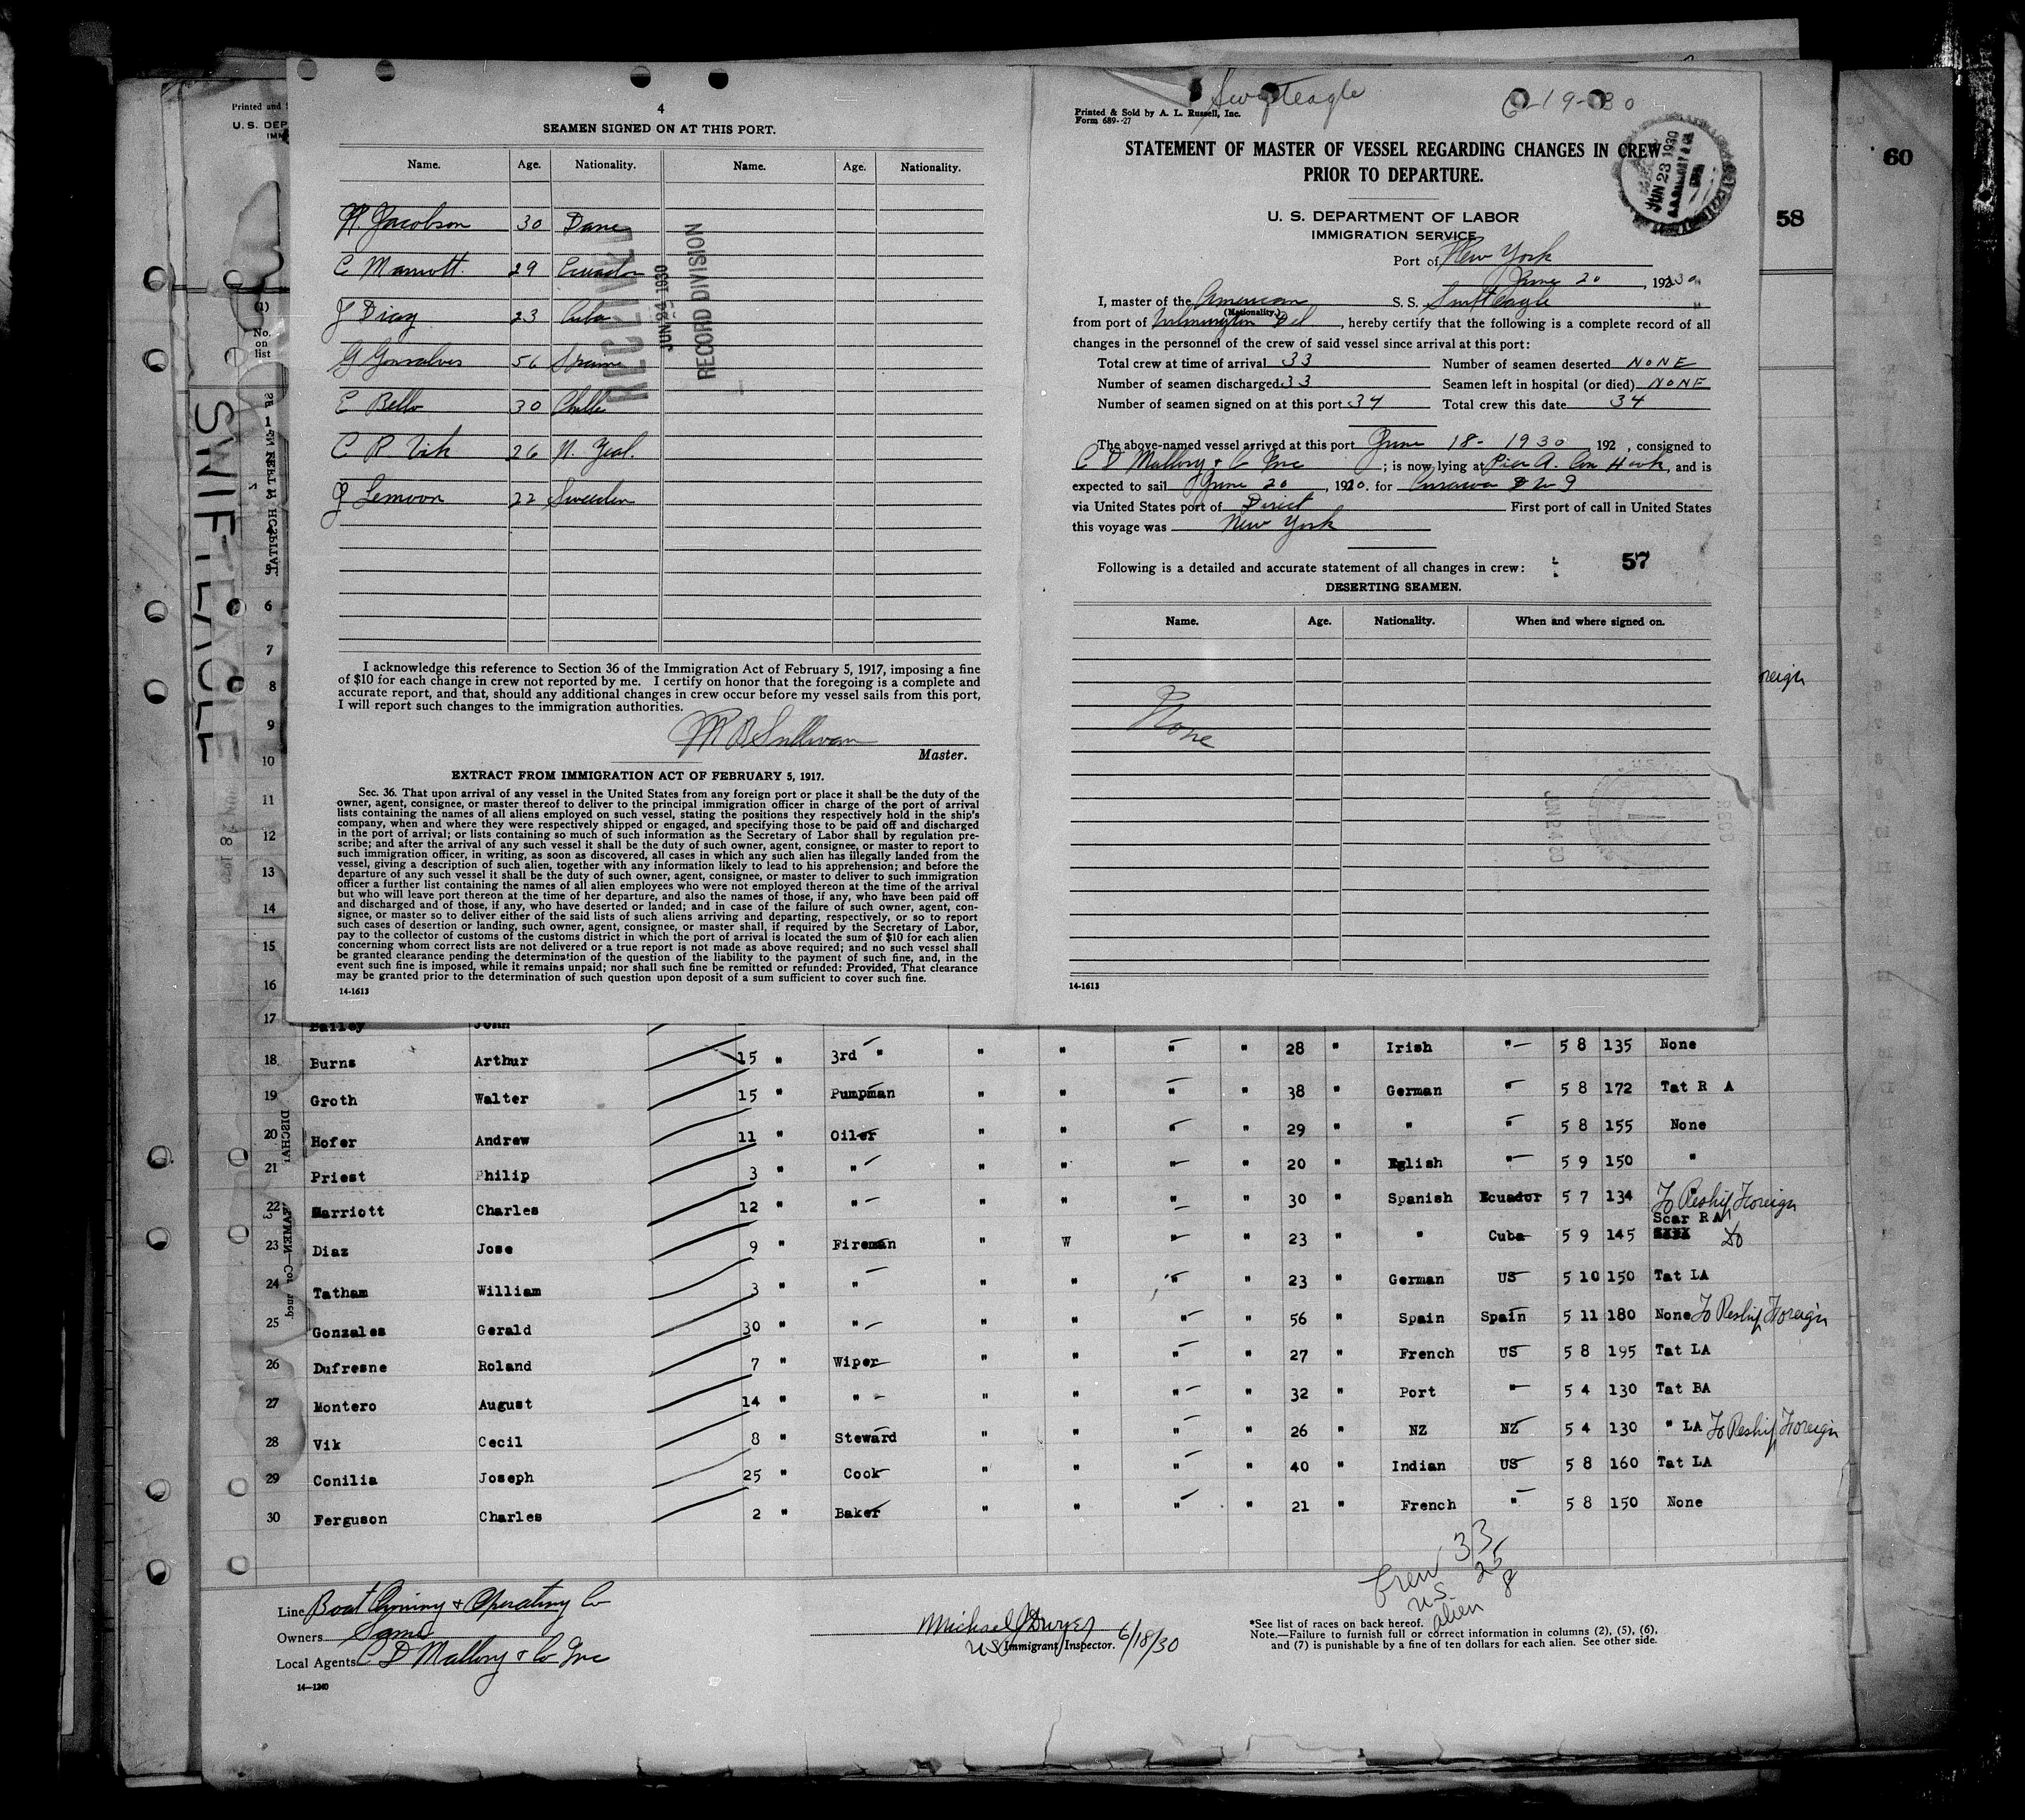 4
SEAMEN SIGNED ON AT THIS PORT.
Name. Age. Nationality. Name. Age. Nationality.
H. Jacobson 30 Dane
C Marriott. 29 Ecuador
J Diaz 23 Cuba
G Gonsalves 56 Spain
E Bello 30 Chille
C R Vik 26 N. Zeal.
J Lemoon 22 Sweden
RECEIVED
JUN 24 1930
RECORD DIVISION
I acknowledge this reference to Section 36 of the Immigration Act of February 5, 1917, imposing a fine
of $10 for each change in crew not reported by me. I certify on honor that the foregoing is a complete and
accurate report, and that, should any additional changes in crew occur before my vessel sails from this port,
I will report such changes to the immigration authorities.
Sullivan
Master.
EXTRACT FROM IMMIGRATION ACT OF FEBRUARY 5, 1917.
Sec. 36. That upon arrival of any vessel in the United States from any foreign port or place it shall be the duty of the
owner, agent, consignee, or master thereof to deliver to the principal immigration officer in charge of the port of arrival
lists containing the names of all aliens employed on such vessel, stating the positions they respectively hold in the ship's
company, when and where they were respectively shipped or engaged, and specifying those to be paid off and discharged
in the port of arrival; or lists containing so much of such information as the Secretary of Labor shall by regulation pre-
scribe; and after the arrival of any such vessel it shall be the duty of such owner, agent, consignee, or master to report to
such immigration officer, in writing, as soon as discovered, all cases in which any such alien has illegally landed from the
vessel, giving a description of such alien, together with any information likely to lead to his apprehension; and before the
departure of any such vessel it shall be the duty of such owner, agent, consignee, or master to deliver to such immigration
officer a further list containing the names of all alien employees who were not employed thereon at the time of the arrival
but who will leave port thereon at the time of her departure, and also the names of those, if any, who have been paid off
and discharged and of those, if any, who have deserted or landed; and in case of the failure of such owner, agent, con-
signee, or master so to deliver either of the said lists of such aliens arriving and departing, respectively, or so to report
such cases of desertion or landing, such owner, agent, consignee, or master shall, if required by the Secretary of Labor,
pay to the collector of customs of the customs district in which the port of arrival is located the sum of $10 for each alien
concerning whom correct lists are not delivered or a true report is not made as above required; and no such vessel shall
be granted clearance pending the determination of the question of the liability to the payment of such fine, and, in the
event such fine is imposed, while it remains unpaid; nor shall such fine be remitted or refunded: Provided, That clearance
may be granted prior to the determination of such question upon deposit of a sum sufficient to cover such fine.
14-1613
Swifteagle 6-19-30
Printed & Sold by A. L. Russell, Inc.
Form 689--27
STATEMENT OF MASTER OF VESSEL REGARDING CHANGES IN CREW
PRIOR TO DEPARTURE.
JUN 23 1930
U. S. DEPARTMENT OF LABOR
IMMIGRATION SERVICE
Port of New York
June 20, 1930
I, master of the American S. S. Swifteagle
(Nationality)
from port of Wilmington Del, hereby certify that the following is a complete record of all
changes in the personnel of the crew of said vessel since arrival at this port:
Total crew at time of arrival 33 Number of seamen deserted NONE
Number of seamen discharged 33 Seamen left in hospital (or died) NONE
Number of seamen signed on at this port 34 Total crew this date 34
The above-named vessel arrived at this port June 18- 1930, 192 , consigned to
C D Mallory & Co Inc; is now lying at Pier A. Con Hook, and is
expected to sail June 20, 1920. for Curacao D W I
via United States port of Direct First port of call in United States
this voyage was New York
Following is a detailed and accurate statement of all changes in crew: 57
DESERTING SEAMEN.
Name. Age. Nationality. When and where signed on.
None
JUN 24 30
14-1613
58
60
Printed and
U. S. DEP
IMM
(1)
No.
on
list
SWIFTEAGLE
oreign
1
6
7
8
9
10
11
12
13
14
15
16
17 Bailey John
18 Burns Arthur 15 " 3rd " " " " " 28 " Irish " 5 8 135 None
19 Groth Walter 15 " Pumpman " " " " 38 " German " 5 8 172 Tat R A
20 Hofer Andrew 11 " Oiler " " " " 29 " " " 5 8 155 None
21 Priest Philip 3 " " " " " " 20 " Eglish " 5 9 150 "
22 Marriott Charles 12 " " " " " " 30 " Spanish Ecuador 5 7 134 To Reship Foreign
23 Diaz Jose 9 " Fireman " W " " 23 " " Cuba 5 9 145 Scar RA XXXX do
24 Tatham William 3 " " " " " " 23 " German US 5 10 150 Tat LA
25 Gonzales Gerald 30 " " " " " " 56 " Spain Spain 5 11 180 None To Reship Foreign
26 Dufresne Roland 7 " Wiper " " " " 27 " French US 5 8 195 Tat LA
27 Montero August 14 " " " " " " 32 " Port " 5 4 130 Tat BA
28 Vik Cecil 8 " Steward " " " " 26 " NZ NZ 5 4 130 " LA To Reship Foreign
29 Conilia Joseph 25 " Cook " " " " 40 " Indian US 5 8 160 Tat LA
30 Ferguson Charles 2 " Baker " " " " 21 " French " 5 8 150 None
Crew 33
US 25
alien 8
Line Boat Owning & Operating Co
Owners Same
Local Agents C D Mallory & Co Inc
14—1240
Michael J Dwyer
US Immigrant Inspector. 6/18/30
*See list of races on back hereof.
Note.—Failure to furnish full or correct information in columns (2), (5), (6),
and (7) is punishable by a fine of ten dollars for each alien. See other side.